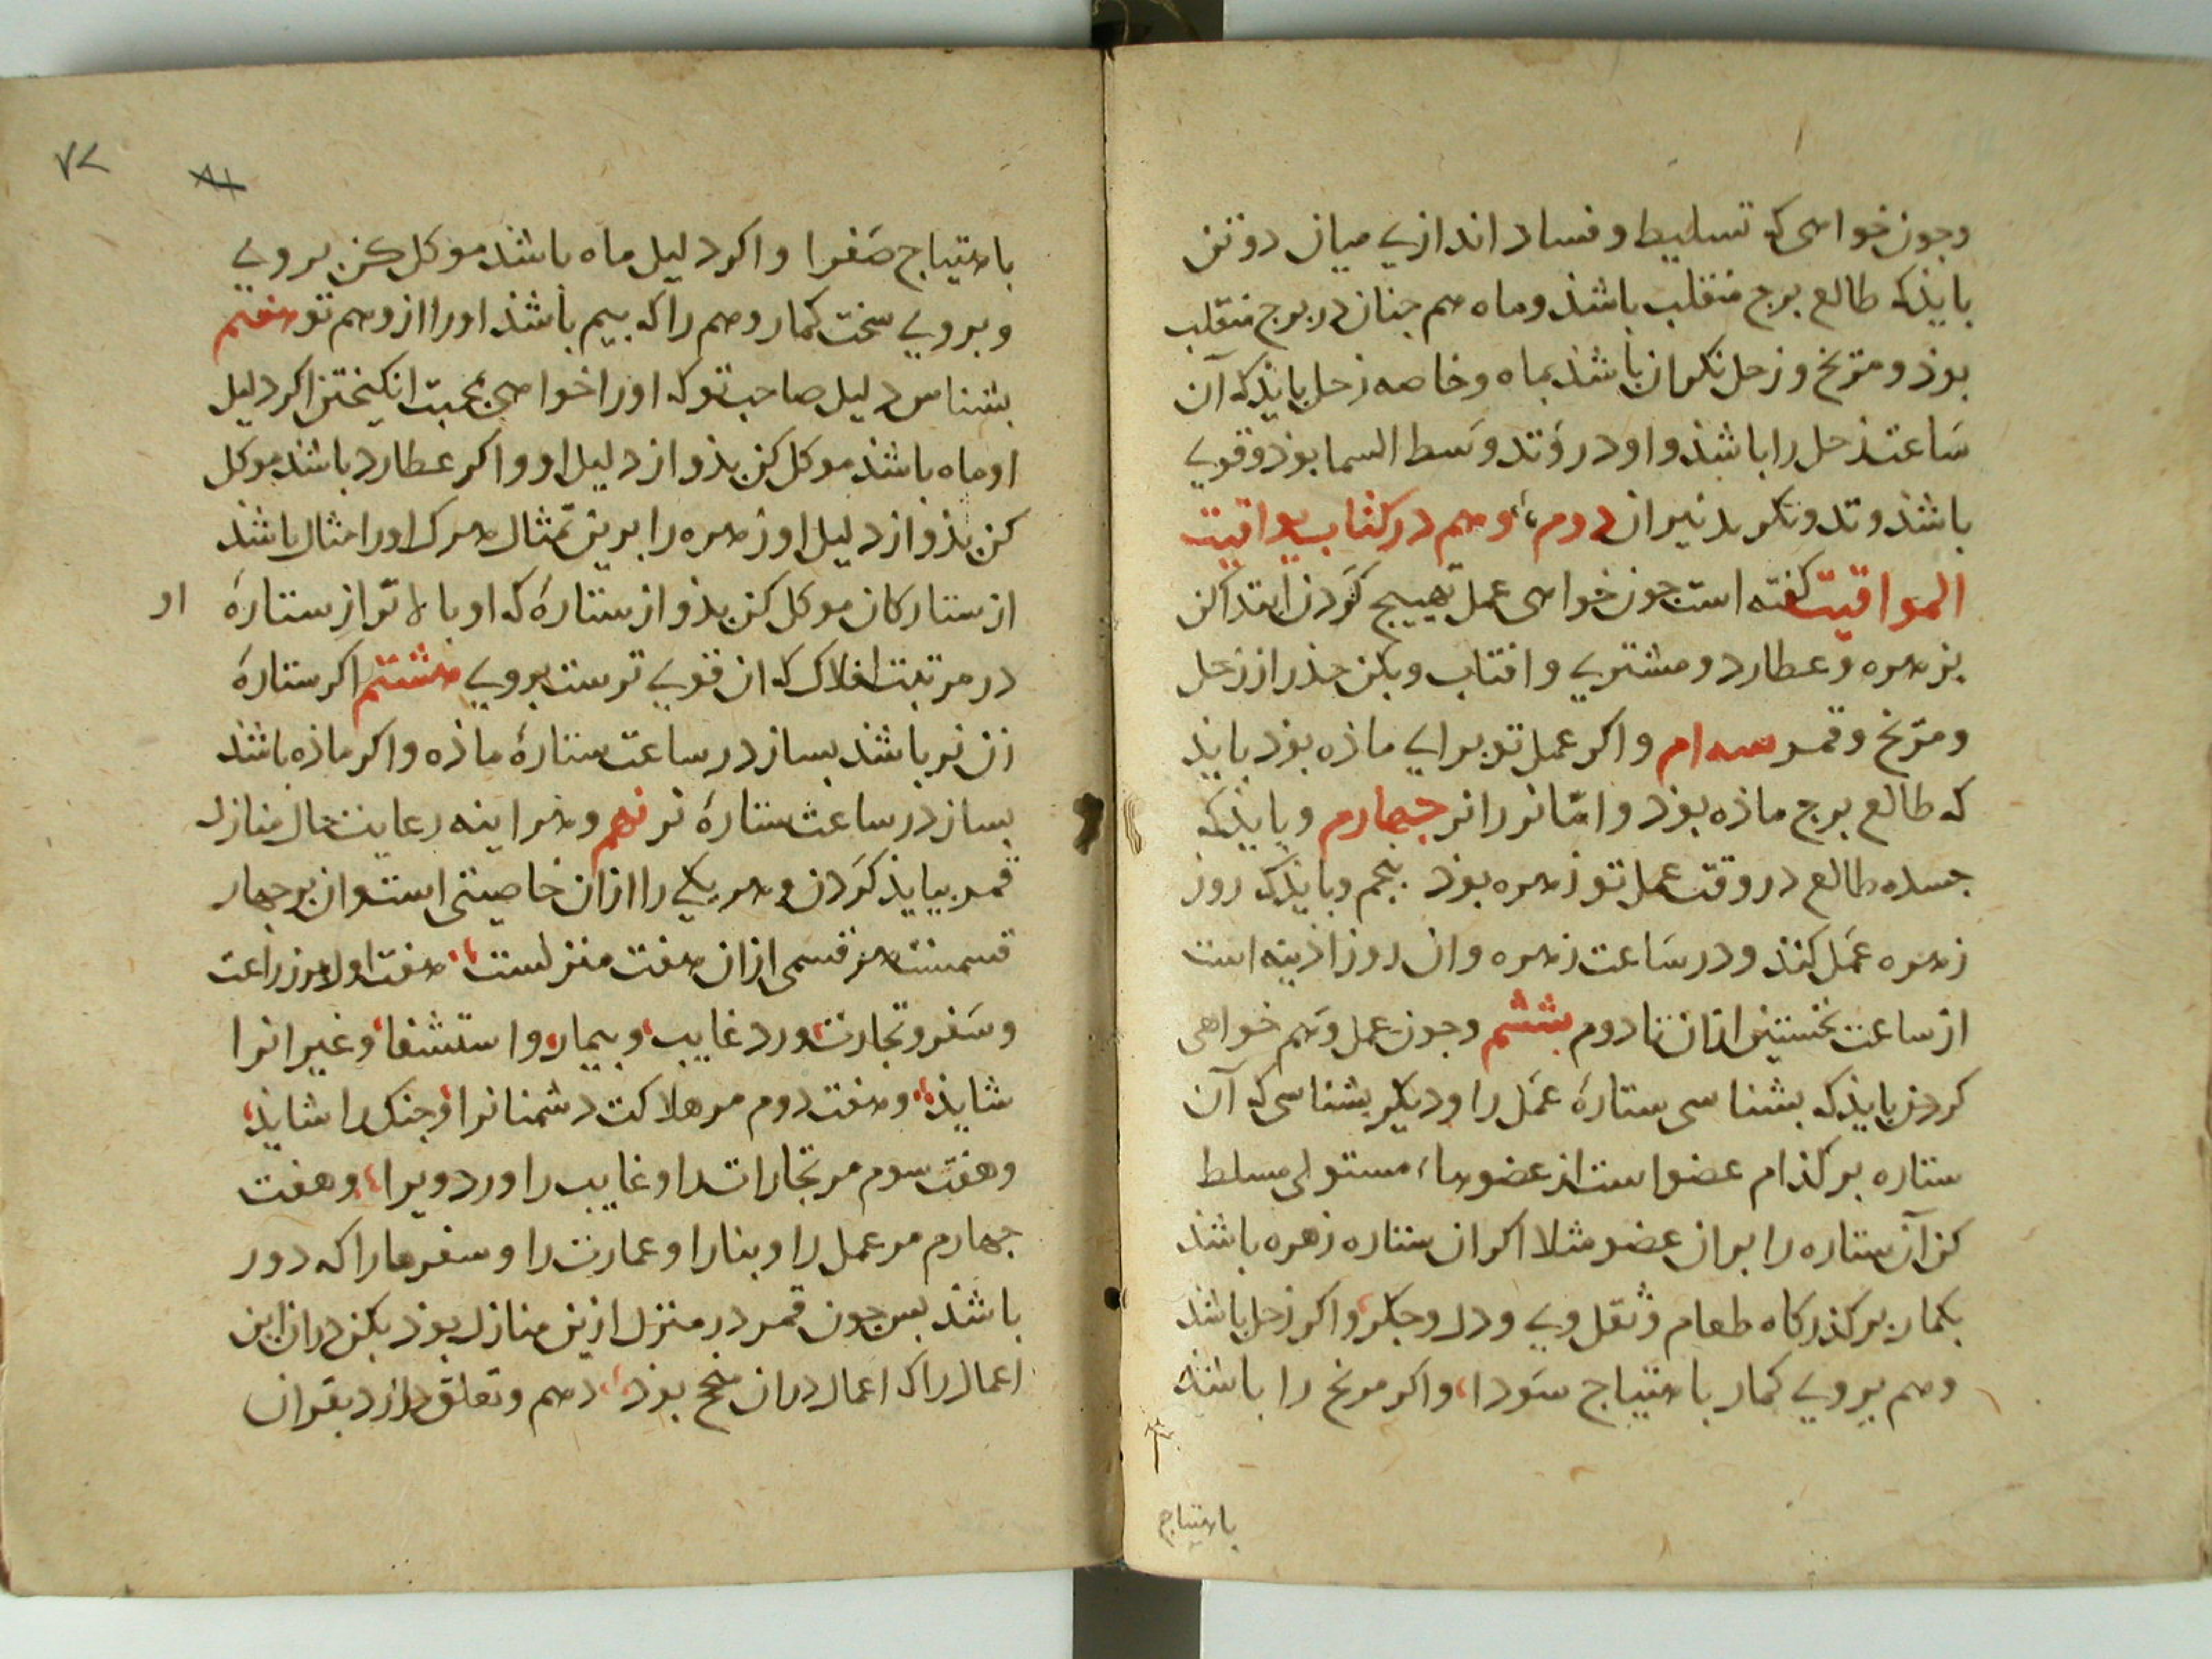 وجون خواهی که تسلیط و فساد اندازی میان دو تن
بایذ که طالع برج منقلب باشذ و ماه هم جنان در برج منقلب
بوذ و مریخ و زحل نکران باشذ بماه و خاصه زحل بایذ که آن
ساعت زحل را باشذ و او در وتد وسط السما بوذ و قوی
باشذ وتد و نکرد نیران دوم، وهم در کتاب یواقیت
المواقیت کفته است جون خواهی عمل تهییج کردن ابتدا کن
بزهره و عطارد و مشتری و افتاب و بکن حذر از زحل
و مریخ و قمر سه ام و اکر عمل تو برای ماذه بوذ بایذ
که طالع برج ماذه بوذ و امّا نر را نر جهارم و بایذ که
جسده طالع در وقت عمل تو زهره بوذ بنجم و بایذ که روز
زهره عمل کنذ و در ساعت زهره و ان روز اذینه است
از ساعت نخستین ازان تا دوم ششم و جون عمل وهم خواهی
کردن بایذ که بشناسی ستارۀ عمل را و دیکر بشناسی که آن
ستاره بر کذام عضو است از عضوها، مستولی مسلط
کن آن ستاره را بران عضو مثلا اکر ان ستاره زهره باشذ
بکمار بر کذرکاه طعام و ثقل وی و دل و جکر، و اکر زحل باشذ
وهم بروی کمار باهتیاج سودا، و اکر مریخ را باشذ
باهتیاج
۷۲
باهتیاج صفرا و اکر دلیل ماه باشذ موکل کن بروی
و بروی سخت کمار وهم را که بیم باشذ او را از وهم تو هفتم
بشناس دلیل صاحب تو که او را خواهی بمحبت انکیختن اکر دلیل
او ماه باشذ موکل کن بذو از دلیل او و اکر عطارد باشذ موکل
کن بذو از دلیل او زهره را برین تمثال هرک او را مثال باشذ
از ستارکان موکل کن بذو از ستارۀ که او بالاتر از ستارۀ او
در مرتبت افلاک که ان قوی ترست بروی هشتم اکر ستارۀ
زن نر باشذ بساز در ساعت ستارۀ ماذه و اکر ماذه باشذ
بساز در ساعت ستارۀ نر نهم و هراینه رعایت حال منازل
قمر ببایذ کردن و هر یکی را ازان خاصیتی است و ان بر جهار
قسمست هر قسمی ازان هفت منزلست، هفت اول مر زراعت
و سفر و تجارت، و رد غایب، و بیمار، و استشفا، و غیر انرا
شایذ، و هفت دوم مر هلاکت دشمنانرا، و جنک را شایذ،
و هفت سوم مر تجارات را و غایب را و رد ویرا، و هفت
جهارم مر عمل را و بنا را و عمارت را و سفرها را که دور
باشذ بس جون قمر در منزل ازین منازل بوذ بکن دران این
اعمال را که اعمال دران منجح بوذ، دهم و تعلق دارد بقران